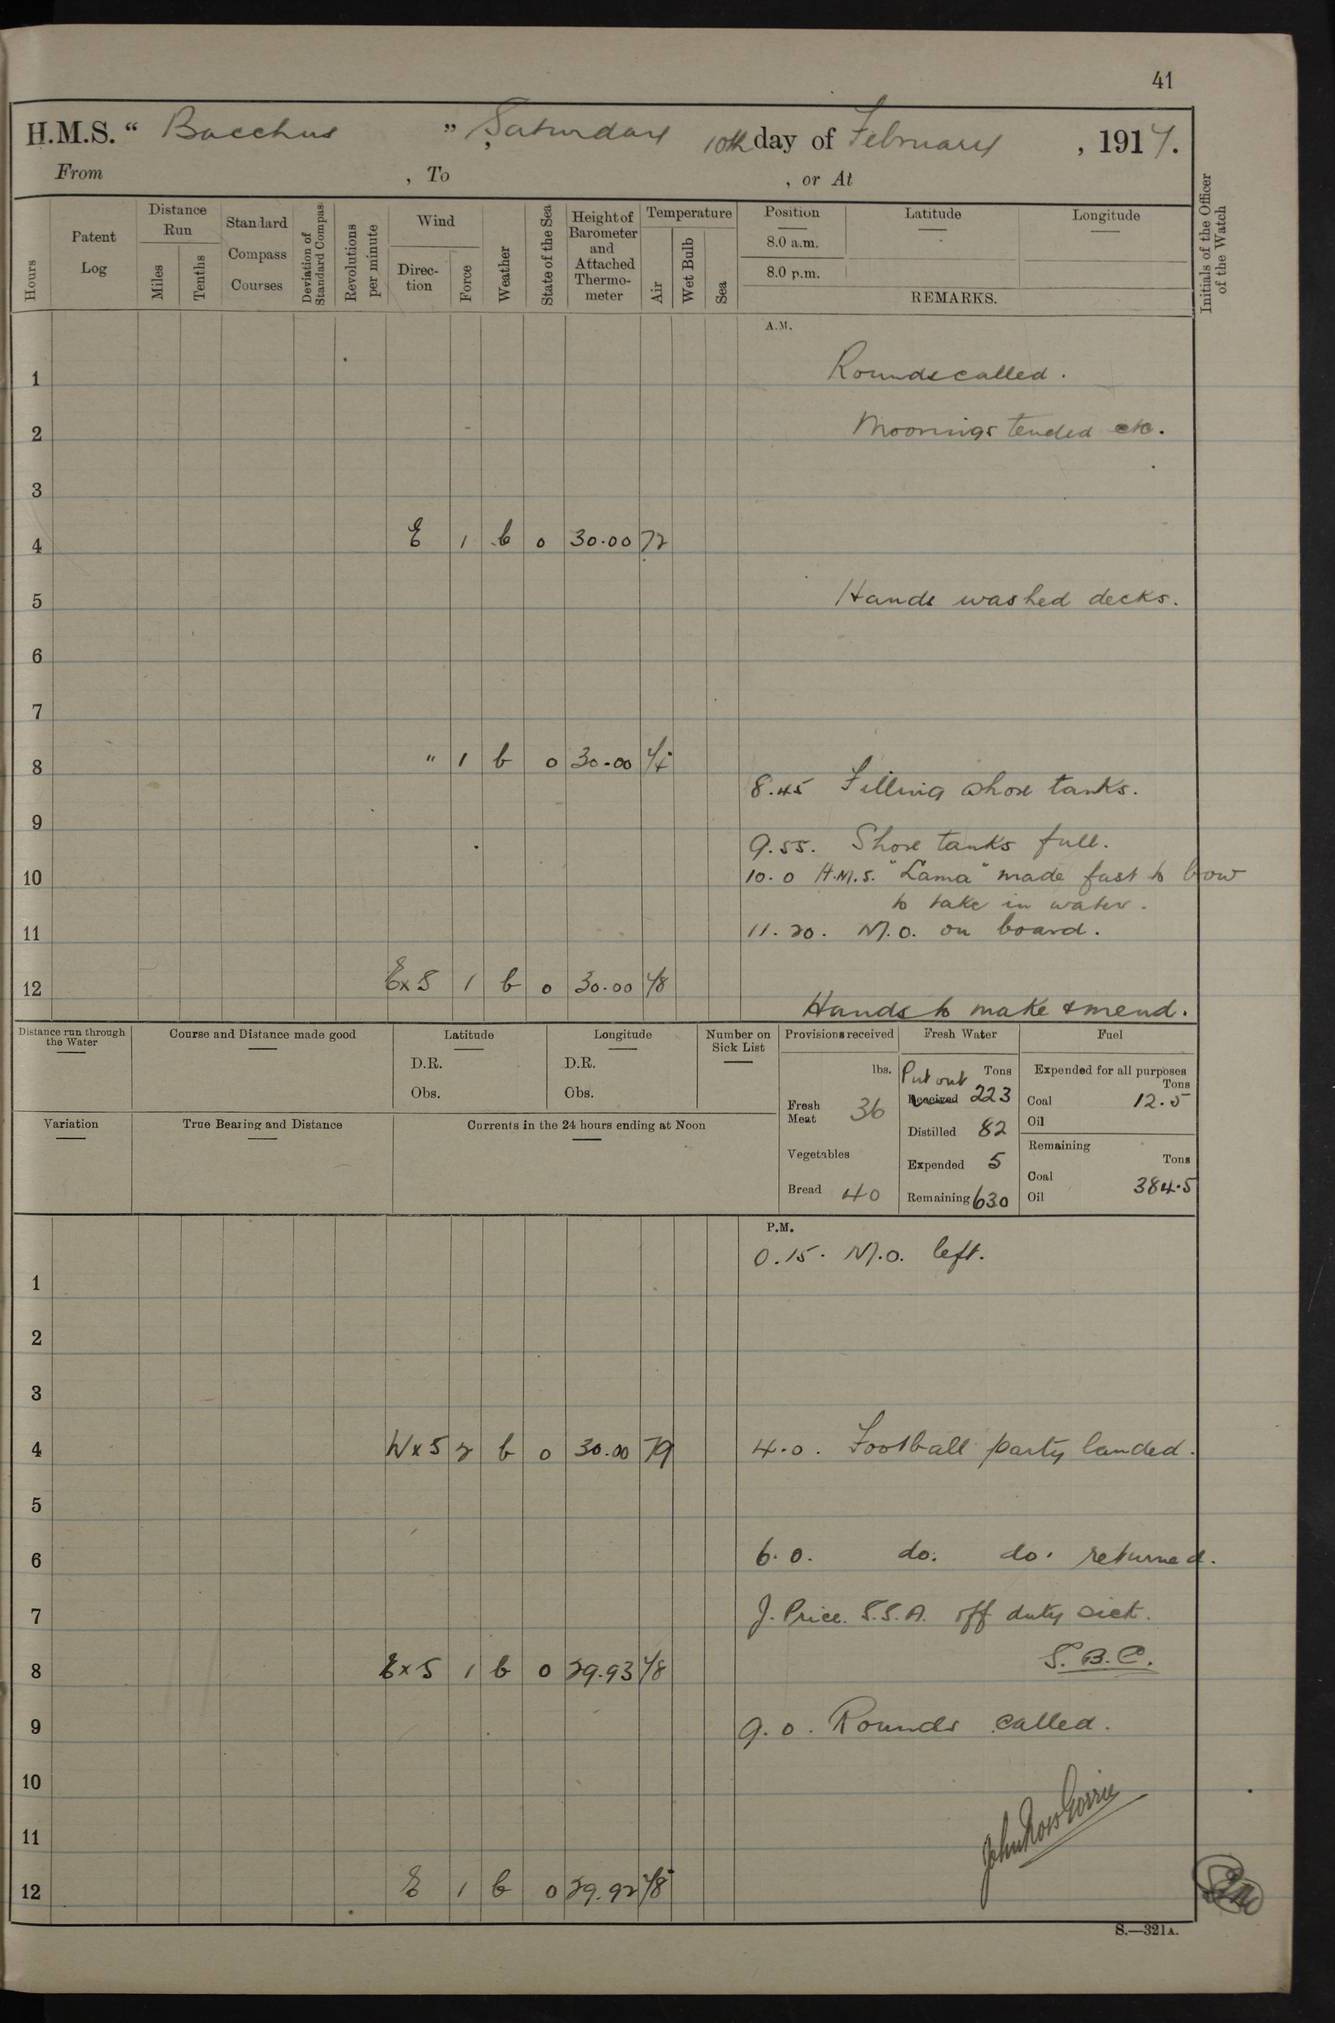 41
H.M.S. “ Bacchus ”, Saturday 10th day of February, 1917.
From , To , or At
Hours
Patent Log
Distance Run
Miles
Tenths
Standard Compass Courses
Deviation of Standard Compass
Revolutions per minute
Wind
Direction
Force
Weather
State of the Sea
Height of Barometer and Attached Thermometer
Temperature
Air
Wet Bulb
Sea
Position
8.0 a.m.
8.0 p.m.
Latitude
Longitude
REMARKS.
Initials of the Officer of the Watch
A.M.
1 Rounds called.
2 Moorings tended etc.
3
4 E 1 b 0 30.00 72
5 Hands washed decks.
6
7
8 " 1 b 0 30.00
8.45 Filling shore tanks.
9
9.55. Shore tanks full.
10 10.0 H.M.S. "Lama" made fast to bow
to take in water.
11 11.20. M.O. on board.
12 ExS 1 b 0 30.00 78
Hands to make & mend.
Distance run through the Water
Course and Distance made good
Latitude
D.R.
Obs.
Longitude
D.R.
Obs.
Number on Sick List
Provisions received
lbs.
Fresh Meat 36
Vegetables
Bread 40
Fresh Water
Tons
Put out Received 223
Distilled 82
Expended 5
Remaining 630
Fuel
Expended for all purposes
Tons
Coal 12.5
Oil
Remaining
Tons
Coal 384.5
Oil
Variation
True Bearing and Distance
Currents in the 24 hours ending at Noon
P.M.
0.15. M.O. left.
1
2
3
4 WxS 2 b 0 30.00 79 4.0. Football party landed.
5
6 6.0. do. do. returned.
7 J. Price. S.S.A. off duty sick.
S.B.C.
8 ExS 1 b 0 29.93 78
9 9.0. Rounds called.
10
11 John Ross Gorrie
12 E 1 b 0 29.92 78
S.—321A.